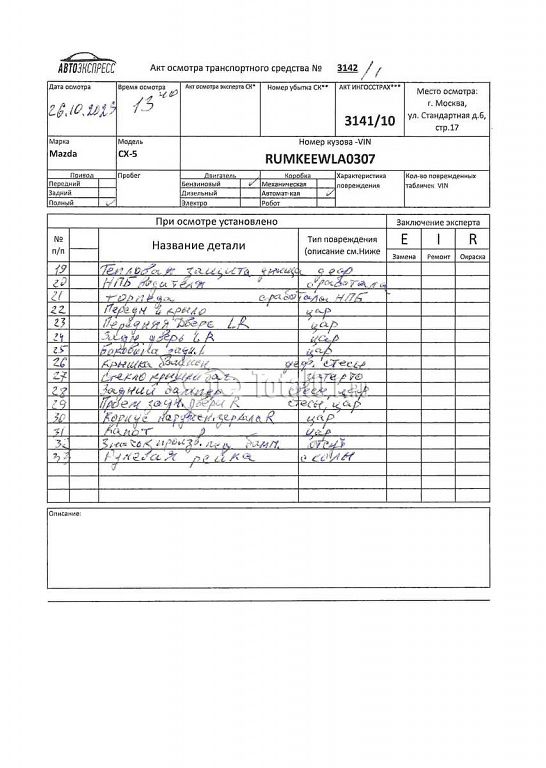 АВТОЭКСПРЕСС
Акт осмотра транспортного средства № 3142/1
Дата осмотра
Время осмотра
Акт осмотра эксперта СК*
Номер убытка СК**
АКТ ИНГОССТРАХ***
Место осмотра:
г. Москва,
ул. Стандартная д.6,
стр.17
26.10.2023
13 40
3141/10
Марка
Модель
Номер кузова -VIN
Mazda
CX-5
RUMKEEWLA0307
Привод
Пробег
Двигатель
Коробка
Характеристика повреждения
Кол-во поврежденных табличек VIN
Передний
Бензиновый ✓
Механическая
Задний
Дизельный
Автомат-кая ✓
Полный ✓
Электро
Робот
При осмотре установлено
Заключение эксперта
№ п/п
Название детали
Тип повреждения (описание см.Ниже
E I R
Замена Ремонт Окраска
19 Тепловая защита днища деф
20 НПБ водителя сработала
21 торпеда сработала НПБ
22 Передн крыло цар
23 Передний дверь LR цар
24 Задн дверь LR цар
25 Боковина задн. L цар
26 Крышка деф. стесы
27 Стекло крышки баг затерто
28 Задний бампер стесы, цар
29 Проем задн. двери R стесы, цар
30 Корпус наружн. зеркала R цар
31 Капот цар
32 Значок произв. пер. бамп.
33 рейка сколы
Описание: